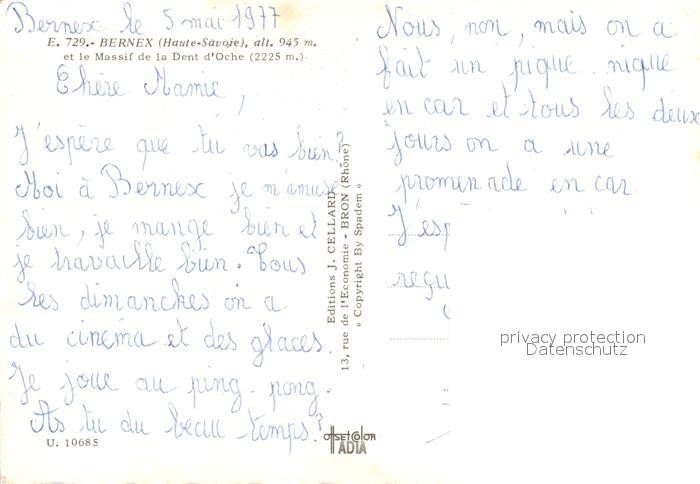 Bernex le 5 mai 1977
E. 729.- BERNEX (Haute-Savoie), alt. 945 m.
et le Massif de la Dent d'Oche (2225 m.)
Chère Mamie,
J'espère que tu vas bien?
Moi à Bernex je m'amuse
bien, je mange bien et
je travaille bien. Tous
les dimanches on a
du cinéma et des glaces.
Je joue au ping-pong.
As tu du beau temps?
U. 10685
Editions J. CELLARD
13, rue de l'Economie - BRON (Rhône)
« Copyright By Spadem »
OFFSETCOLOR
ADIA
Nous, non, mais on a
fait un pique-nique
en car et tous les deux
jours on a une
promenade en car
J'esp
reçu
privacy protection
Datenschutz